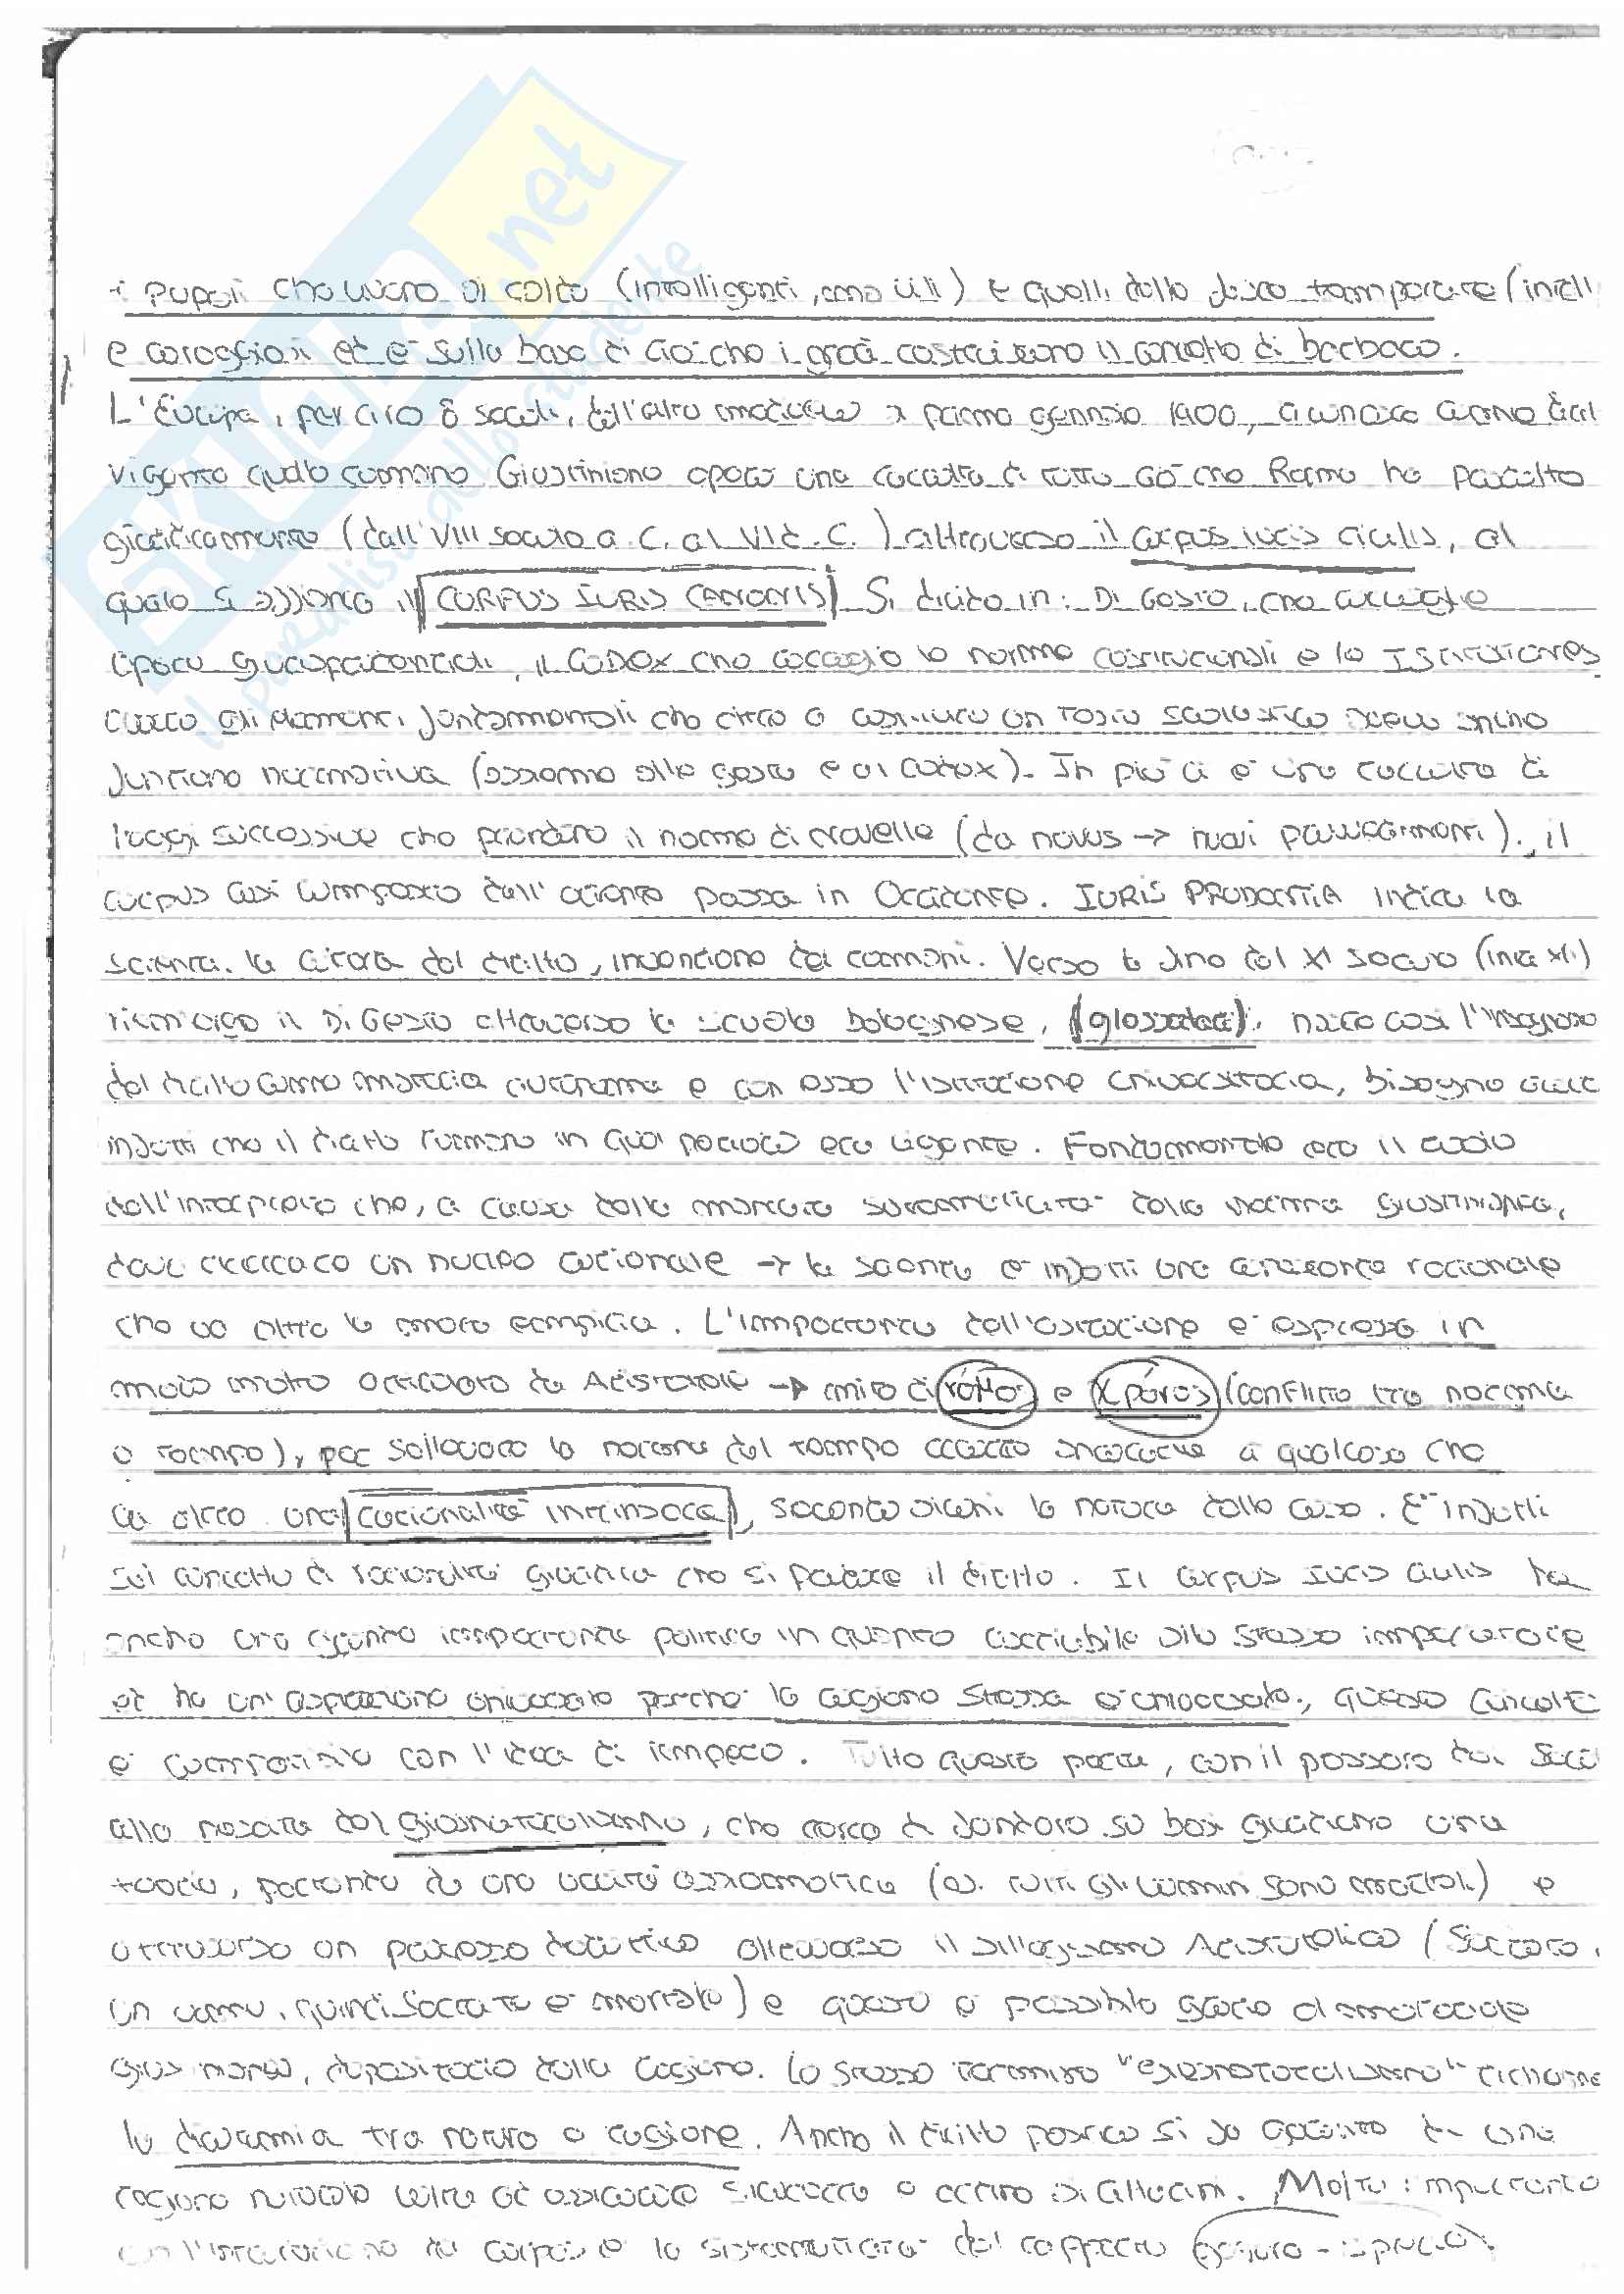 i popoli che vivono al caldo (intelligenti, ma vili) e quelli dalle fasce temperate (intell
e coraggiosi ed è sulla base di ciò che i greci costruiscono il concetto di barbaro.
L'Europa, per circa 8 secoli, dall'alto medioevo a primo gennaio 1900, aveva come
vigente quello romano. Giustiniano operò una raccolta di tutto ciò che Roma ha prodotto
giuridicamente (dall'VIII secolo a.C. al VI d.C.) attraverso il corpus iuris civilis, al
quale si affianca il CORPUS IURIS CANONIS. Si divide in: DiGesto, che accoglie
opere giurisprudenziali, il CODEX che raccoglie le norme costituzionali e le Istitutiones
ovvero gli elementi fondamentali che oltre a costituire un testo scolastico aveva anche
funzione normativa (assieme alle gesto e al codex). In più ci è una raccolta di
leggi successive che prendono il nome di novelle (da novus → nuovi provvedimenti)., il
corpus così composto dall'oriente passa in Occidente. IURIS PRUDENTIA indica la
scienza. la civiltà del diritto, invenzione dei romani. Verso la fine del XI secolo (inizi XII)
riemerge il DiGesto attraverso la scuola bolognese, (glossatori), nasce così l'insegname
del diritto come materia autonoma e con esso l'istituzione universitaria, bisogna
infatti che il diritto romano in quel periodo era vigente. Fondamentale era il ruolo
dell'interprete che, a causa della mancata sistematicità della norma giustinianea,
deve ricercare un nucleo razionale → la scienza è infatti una conoscenza razionale
che va oltre la mera empiria. L'importanza dell'astrazione è espressa in
modo molto accurato da Aristotele → mito di νόμος e χρόνος (conflitto tra norma
e tempo), per sollevare la norma dal tempo occorre ancorarla a qualcosa che
ha dietro una razionalità intrinseca, secondo alcuni la natura delle cose. È infatti
sul concetto di razionalità giuridica che si poggia il diritto. Il Corpus Iuris Civilis ha
anche una grande importanza politica in quanto ascrivibile allo stesso imperatore
ed ha un'aspirazione universale perché la ragione stessa è universale., questo
è compatibile con l'idea di impero. Tutto questo porta, con il passare dei seco
alla nascita del Giusnaturalismo, che cerca di fondare su basi giuridiche una
teoria, partendo da una verità assiomatica (es. tutti gli uomini sono mortali) e
attraverso un processo deduttivo attraverso il sillogismo Aristotelico (Socrate,
un uomo, quindi Socrate è mortale) e questo è possibile grazie al
depositario della ragione. Lo stesso termine "giusnaturalismo" richiama
la dicotomia tra natura e ragione. Anche il diritto
ragione naturale Molto importante
con l'istituzione del corpus è la sistematicità del rapporto genere-specie.